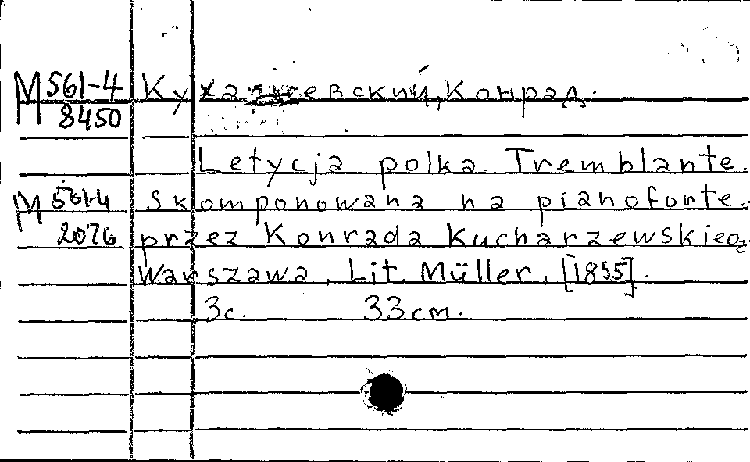 М 561-4
8450
Кухаржевский, Конрад.
Letycja polka Tremblante.
М 561-4
2076
skomponowana na pianoforte.
przez Konrada Kucharzewskieg
Warszawa, Lit. Müller, [1855].
3с. 33cm.